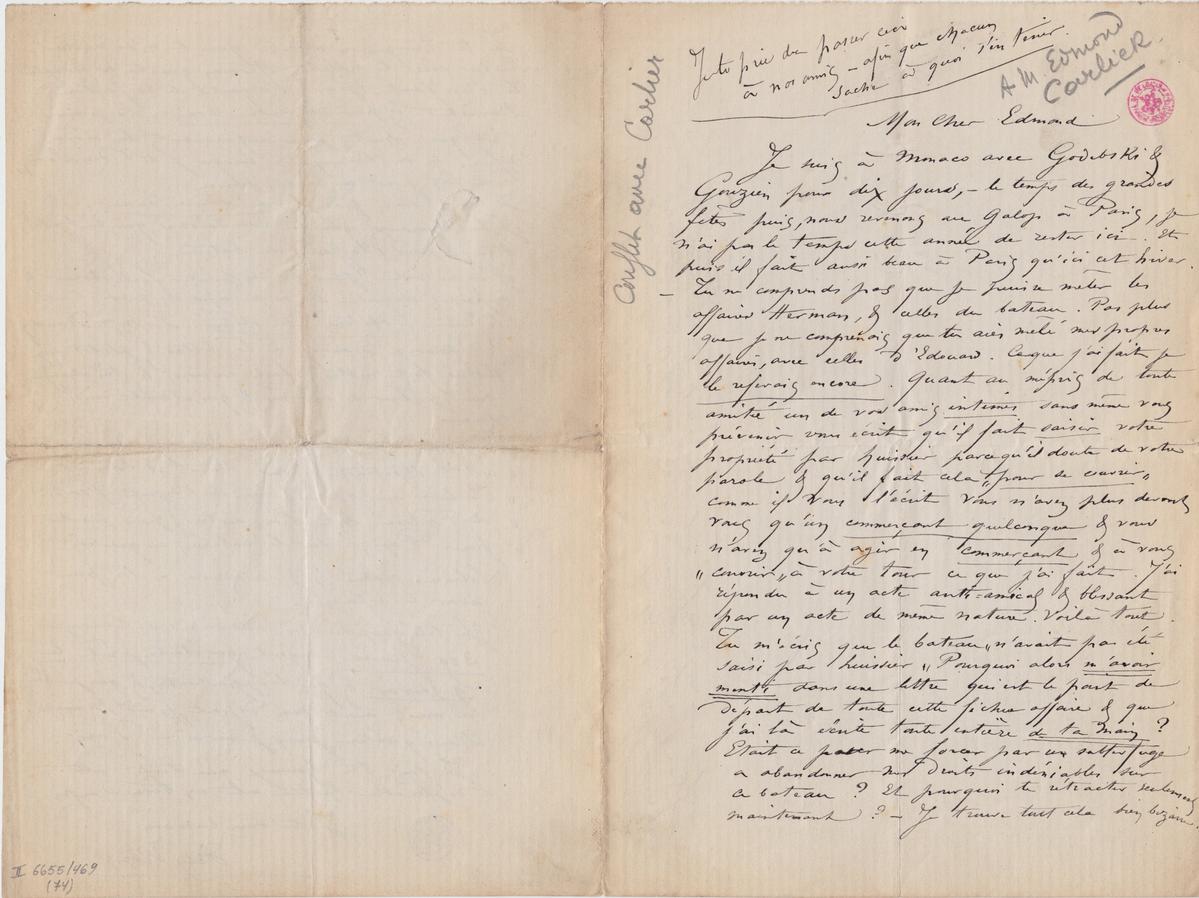 Je te prie de passer ceci
à nos amis – afin que chacun
sache à quoi s'en tenir.
A M. Edmond
Carlier
Conflit avec Carlier
Mon Cher Edmond
Je suis à Monaco avec Godebski &
Gouzien pour dix jours, – le temps des grandes
fêtes puis, nous revenons au Galop à Paris, je
n'ai pas le temps cette année de rester ici. Et
puis il fait aussi beau à Paris qu'ici cet hiver.
– Tu ne comprends pas que je puisse mêler les
affaires Herman, & celles du bateau. Pas plus
que je ne comprenais que tu aies mêlé mes propres
affaires, avec celles d'Edouard. Ce que j'ai fait je
le referais encore. Quant au mépris de toute
amitié un de vos amis intimes sans même vous
prévenir vous écrit qu'il fait saisir votre
propriété par huissier parcequ'il doute de votre
parole & qu'il fait cela „pour se couvrir„
comme il vous l'écrit vous n'avez plus devant
vous qu'un commerçant quelconque & vous
n'avez qu'à agir en commerçant & à vous
„couvrir„ à votre tour ce que j'ai fait. J'ai
répondu à un acte anti-amical & blessant
par un acte de même nature. Voilà tout.
Tu m'écris que le bateau „n'avait pas été
saisi par huissier„ Pourquoi alors m'avoir
menti dans une lettre qui est le point de
départ de toute cette fichue affaire & que
j'ai là écrite toute entière de ta main ?
Etait ce pour me forcer par un subterfuge
a abandonner mes droits indéniables sur
ce bateau ? Et pourquoi te rétracter seulement
maintenant ? – Je trouve tout cela bien bizarre.
II 6655/469
(74)